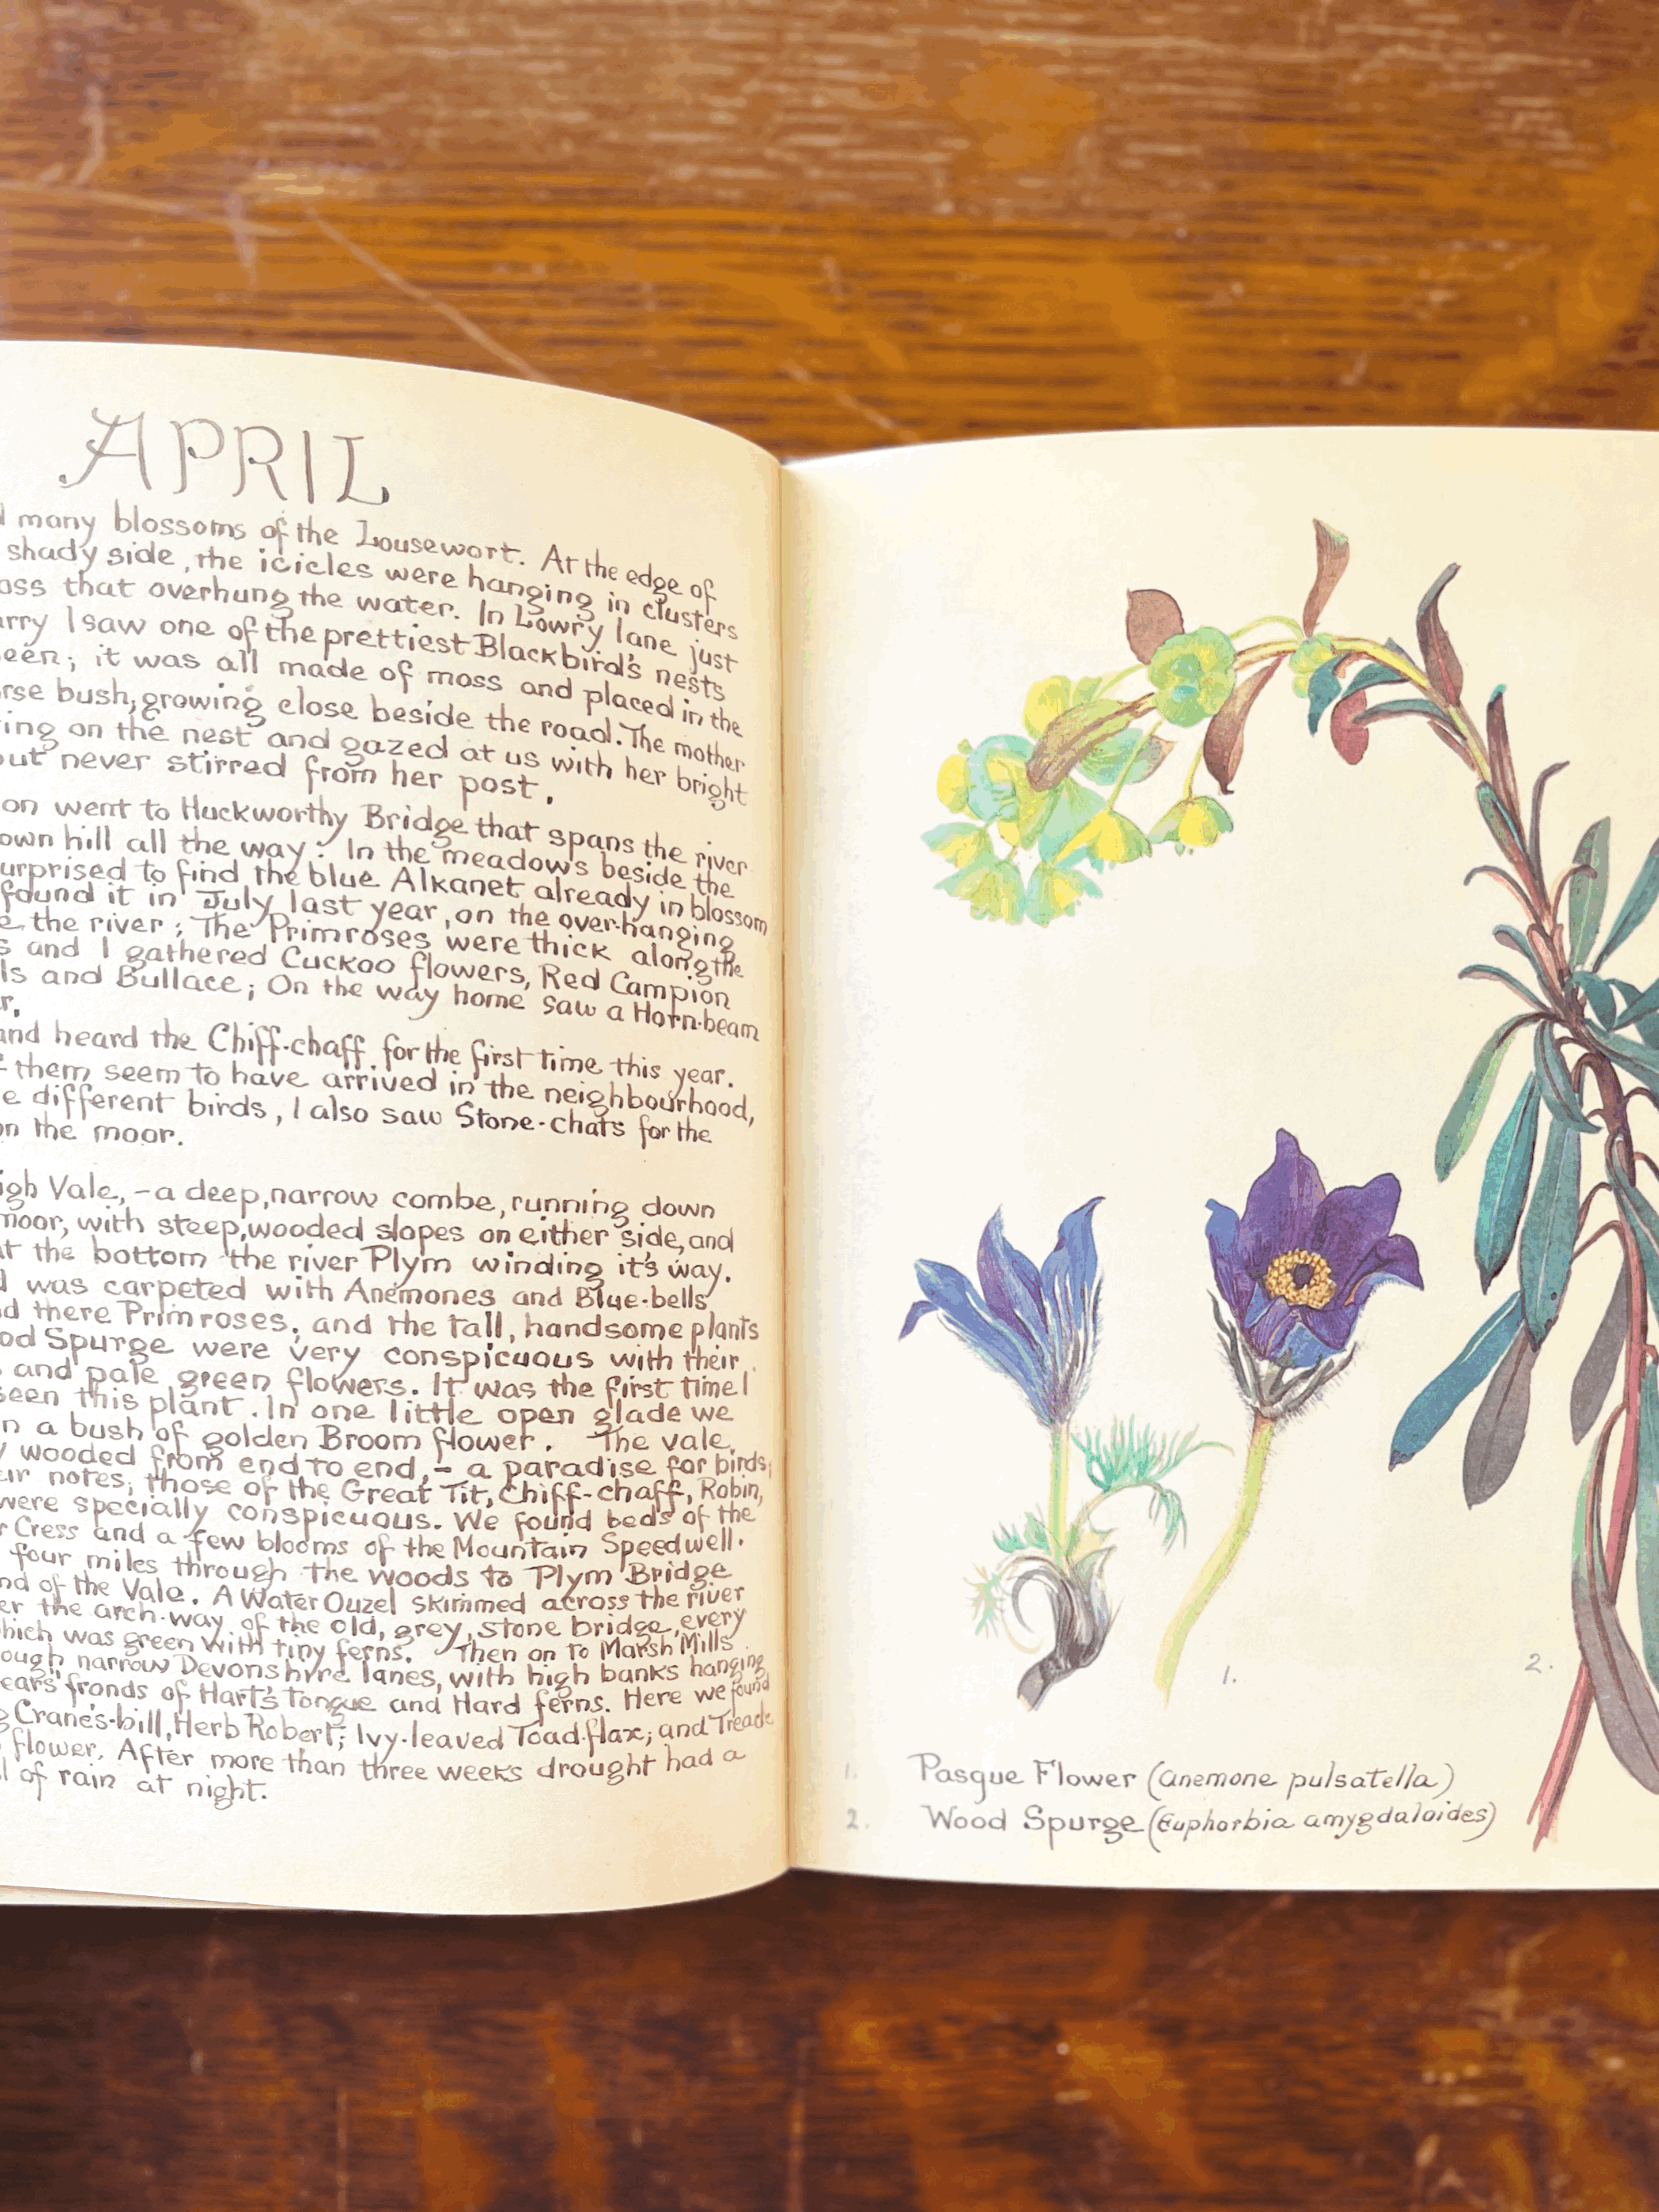 APRIL
many blossoms of the Lousewort. At the edge of
shady side, the icicles were hanging in clusters
that overhung the water. In Lowry lane just
I saw one of the prettiest Blackbird's nests
it was all made of moss and placed in the
bush, growing close beside the road. The mother
on the nest and gazed at us with her bright
never stirred from her post.
on went to Huckworthy Bridge that spans the river
hill all the way: In the meadows beside the
to find the blue Alkanet already in blossom
found it in July last year, on the over-hanging
the river; The Primroses were thick along the
and I gathered Cuckoo flowers, Red Campion
and Bullace; On the way home saw a Horn-beam
and heard the Chiff-chaff for the first time this year.
them seem to have arrived in the neighbourhood,
different birds, I also saw Stone-chats for the
the moor.
Vale, - a deep, narrow combe, running down
moor, with steep, wooded slopes on either side, and
the bottom the river Plym winding it's way.
was carpeted with Anemones and Blue-bells
there Primroses; and the tall, handsome plants
Spurge were very conspicuous with their
and pale green flowers. It was the first time I
seen this plant. In one little open glade we
a bush of golden Broom flower. The vale
wooded from end to end, - a paradise for birds;
notes; those of the Great Tit, Chiff-chaff, Robin,
were specially conspicuous. We found beds of the
Cress and a few blooms of the Mountain Speedwell.
four miles through the woods to Plym Bridge
of the Vale. A Water Ouzel skimmed across the river
the arch-way of the old, grey, stone bridge, every
which was green with tiny ferns. Then on to Marsh Mills
narrow Devonshire lanes, with high banks hanging
fronds of Hart's Tongue and Hard ferns. Here we found
Crane's-bill, Herb Robert; Ivy-leaved Toad-flax; and Treacle
flower. After more than three weeks drought had a
of rain at night.
1.
2.
1. Pasque Flower (Anemone pulsatella)
2. Wood Spurge (Euphorbia amygdaloides)